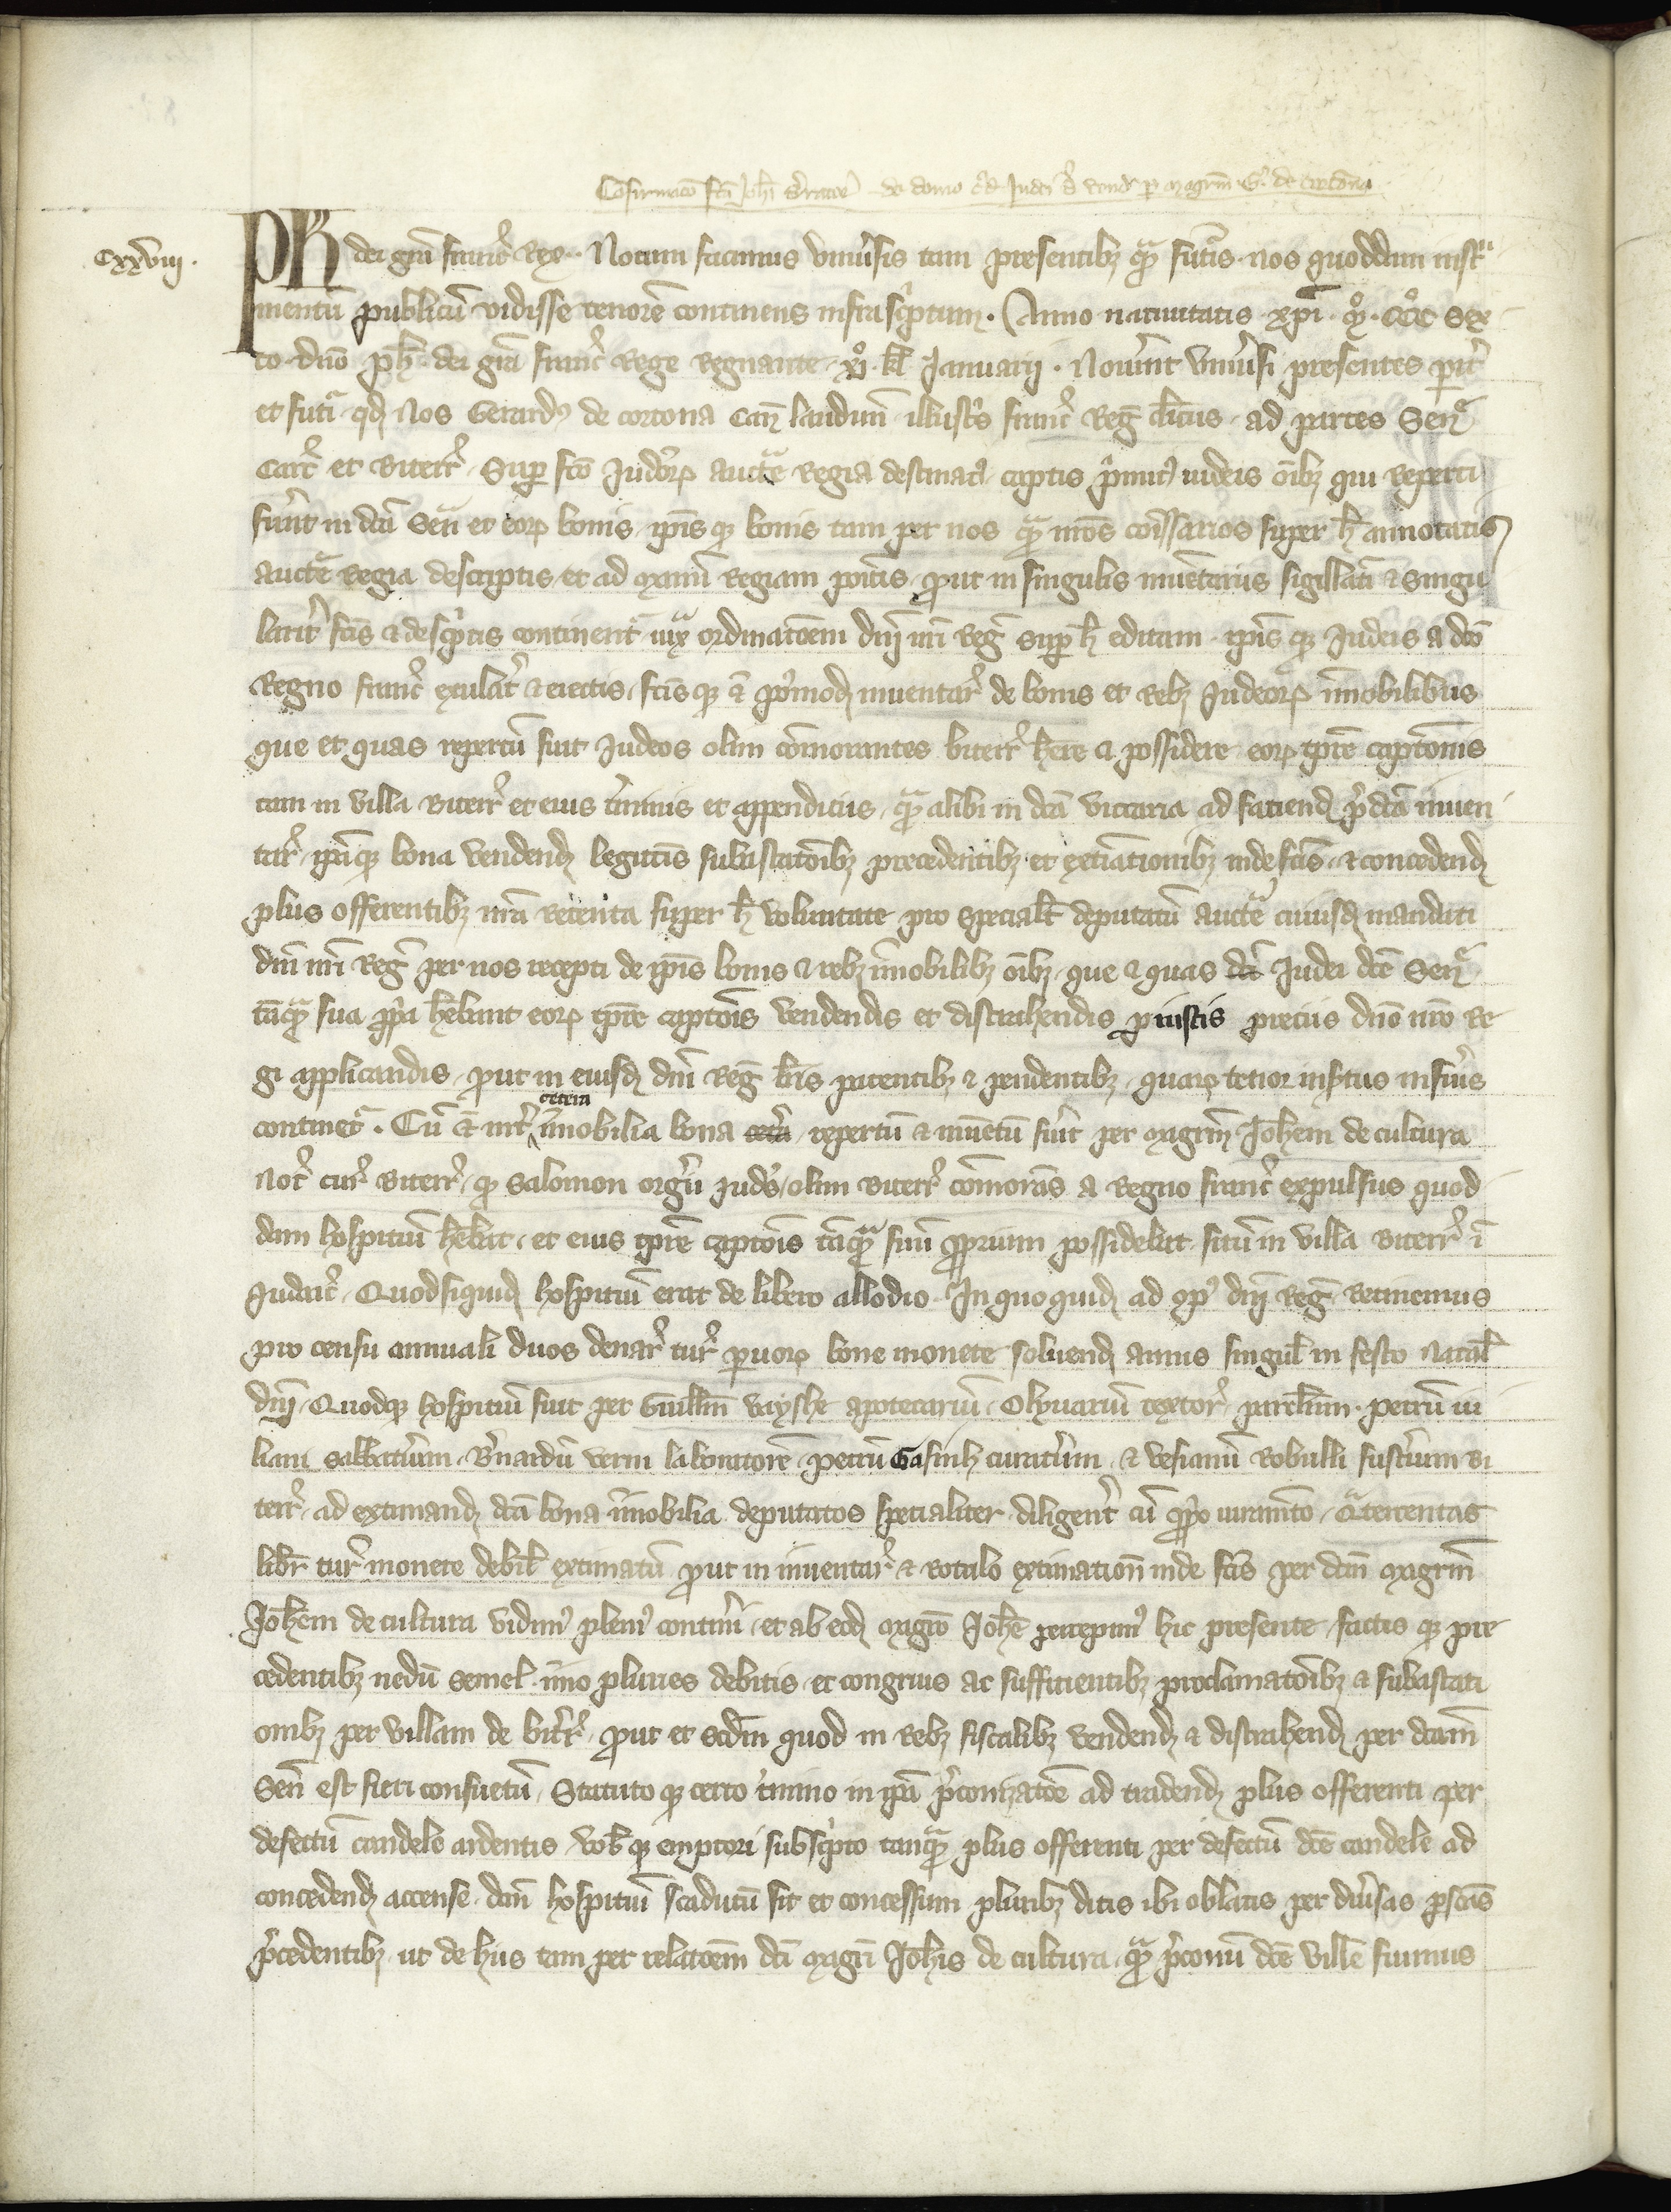 Cxxviij.
Ph dei gra franc Rex. Notum facimus vniusis tam presentibz qua futis. nos quoddam instru
mentu publicu vidisse tenore continens infrascptum. Anno natiuitatis xpi mo ccco sex
to dno ph dei gra franc Rege Regnante xjo kl Januarij. Nouint vniusi presentes pit
et futi qd Nos Gerardus de cortona can laudun illustris franc Reg clicus ad partes Sen
Carc et Biterr Sup fco Judeor aucte Regia destinat captis pmit iudeis oibz qui reperti
fuint in dca Sen et eor bonis ipis qz bonis tam per nos qua nros comissarios super h annotatis
aucte Regia descriptis et ad manu Regiam positis put in singulis inuentariis sigillati et singu
larit fcis et descptis continent iux ordinatoem dnj nri Reg sup h editam ipis qz Judeis a dco
Regno franc exulat et eiectis fcis qz postmod inuentar de bonis et Rebz Judeor imobilibus
que et quas repertu fuit Judeos olim comorantes biterr here et possidere eor tpre captonis
tam in villa Biterr et eius tminis et appendiciis qua alibi in dca vicaria ad faciend pdca inuen
tar ipaqz bona vendend legitis subastatoibz precedentibz et extiationibz inde fcis et concedend
plus offerentibz nra retenta super h voluntate pro specialit deputatu aucte cuiusd mandati
dni nri Reg per nos recepti de ipis bonis et rebz imobilibz oibz que et quas Judei dce Sen
taqua sua ppa hebant eor tpre captois vendendis et distrahendis p iustis preciis dno nro Re
gi applicandis put in eiusd dni Reg lris patentibz et pendentibz quar tenor insertus inferius
continet. Cu int cetera imobilia bona repertu et inuetu fuit per magrm Johem de cultura
Not cur Biterr qz Salomon Judeus olim Biterr comoras a Regno franc expulsus quod
dam hospitiu hebat et eius tpre captois taqua suu pprium possidebat situ in villa Biterr i
Judaic Quod siquid hospitiu erat de libero allodio In quo quid ad opus dnj Reg Retinemus
pro censu annuali duos denar tur puor bone monete soluend annis singul in festo Natal
dnj Quodqz hospitiu fuit per Guillm apotecariu Olyuariu textor Petru iu
liani Bnardu verni laboratore Petru Gasinh curatium et vesianu Robulli fustium Bi
terr ad extimand dca bona imobilia deputatos specialiter diligent cu ppo iuramto Qatercentas
libr tur monete debil extimatu put in inuentar et Rotulo extimation inde fcis per dcm magrm
Johem de cultura vidim plen contini et ab eod magro Johe recepim hic presente factis qz pre
cedentibz nedu semel imo pluries debitis et congruis ac sufficientibz proclamatoibz et subastati
onibz per villam de bitrr put et scdm quod in Rebz fiscalibz vendend et distrahend per dcam
Sen est fieri consuetu Statuto qz certo tmino in ipa pconizatoe ad tradend plus offerenti per
defectu candele ardentis vob qz emptori subscpto tanqua plus offerenti per defectu dce candele ad
concedend accense dcm hospitiu scadutu sit et concessum pluribz ditis ibi oblatis per diusas psonas
pcedentibz ut de hiis tam per relatoem dci magri Johis de cultura qua pconu dce ville fuimus